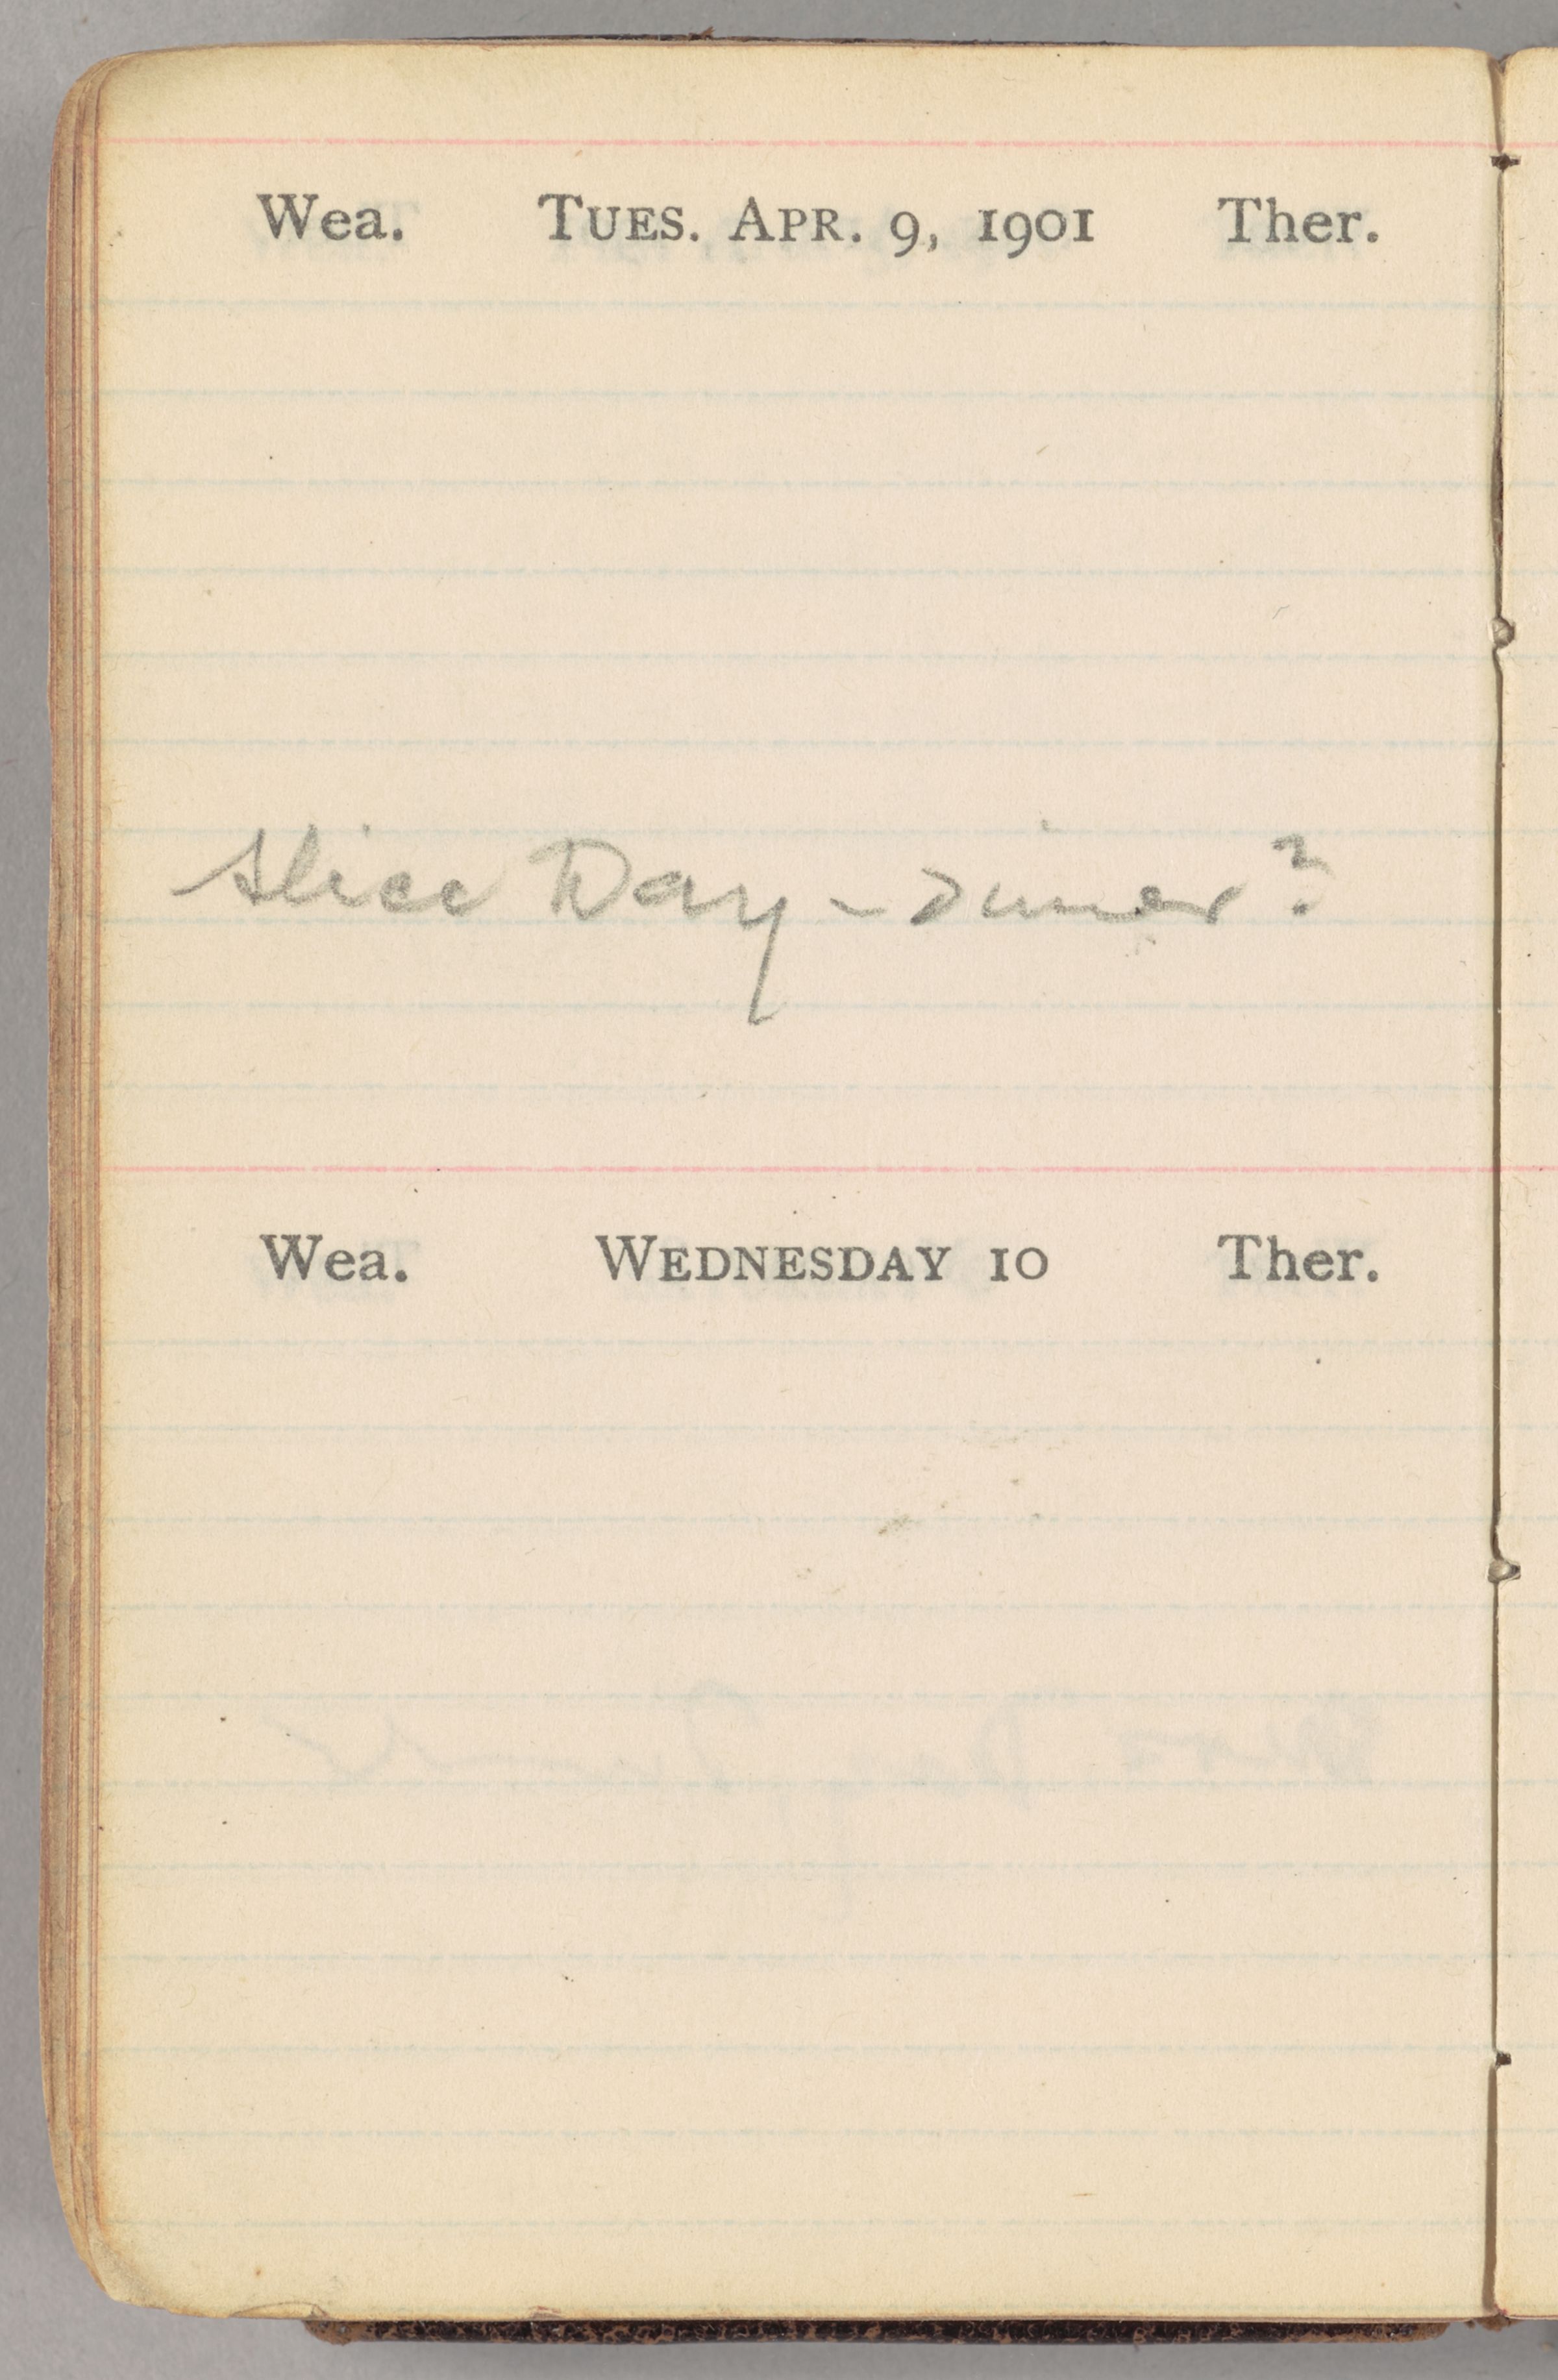 Wea. TUES. APR. 9, 1901 Ther.
Alice Day - dinner?
Wea. WEDNESDAY 10 Ther.